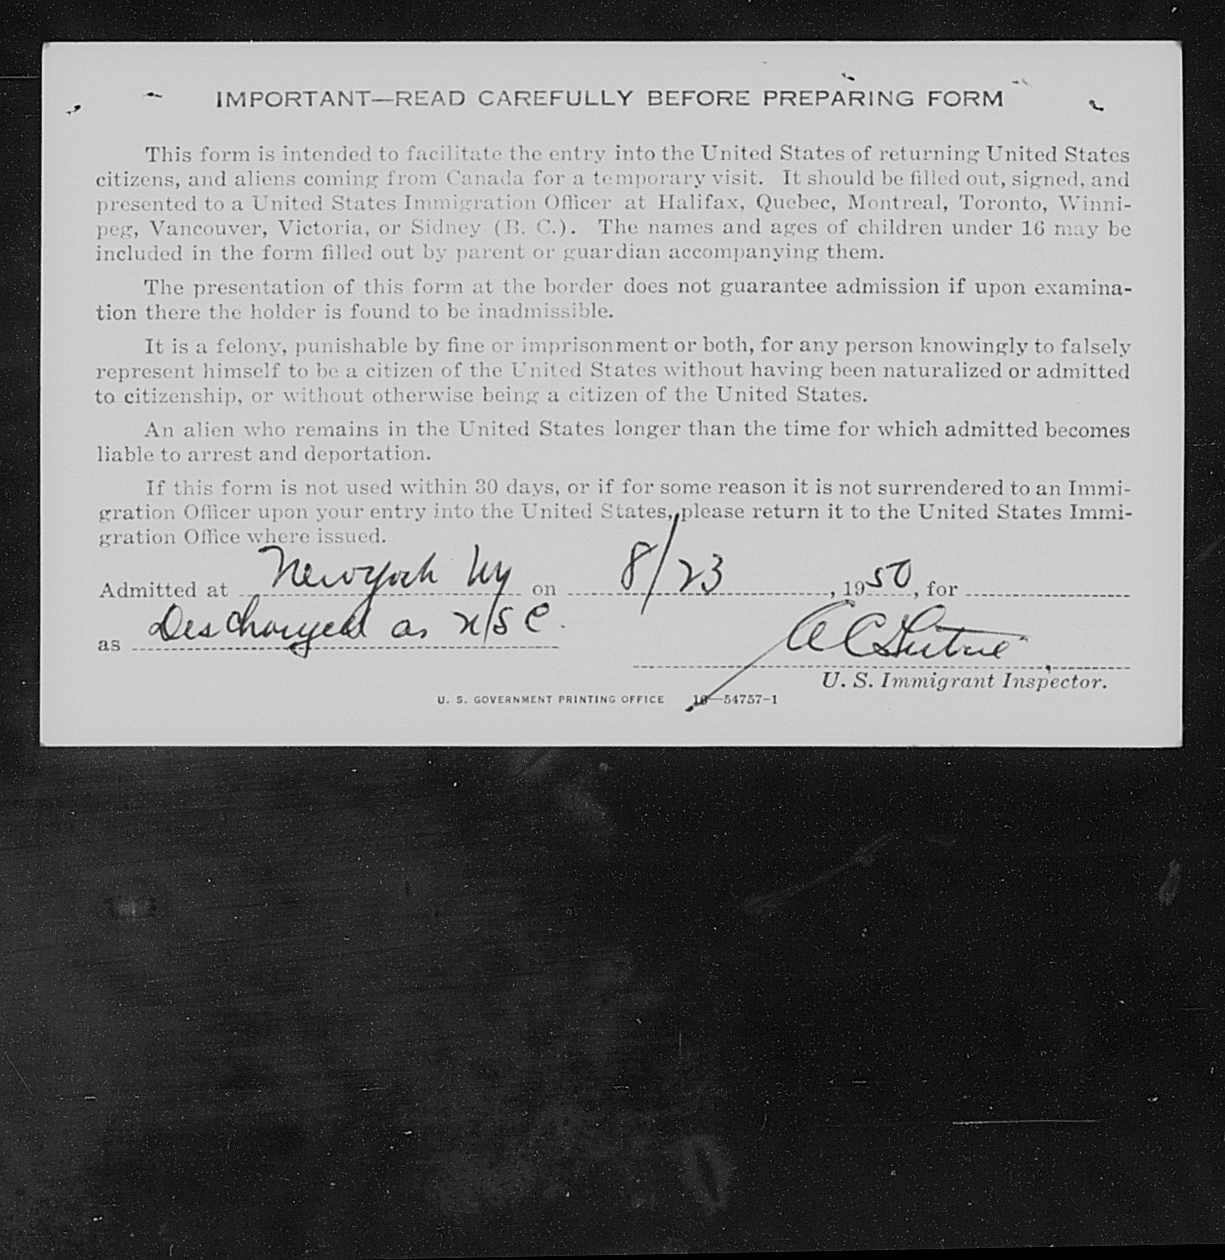 IMPORTANT—READ CAREFULLY BEFORE PREPARING FORM
This form is intended to facilitate the entry into the United States of returning United States
citizens, and aliens coming from Canada for a temporary visit. It should be filled out, signed, and
presented to a United States Immigration Officer at Halifax, Quebec, Montreal, Toronto, Winni-
peg, Vancouver, Victoria, or Sidney (B. C.). The names and ages of children under 16 may be
included in the form filled out by parent or guardian accompanying them.
The presentation of this form at the border does not guarantee admission if upon examina-
tion there the holder is found to be inadmissible.
It is a felony, punishable by fine or imprisonment or both, for any person knowingly to falsely
represent himself to be a citizen of the United States without having been naturalized or admitted
to citizenship, or without otherwise being a citizen of the United States.
An alien who remains in the United States longer than the time for which admitted becomes
liable to arrest and deportation.
If this form is not used within 30 days, or if for some reason it is not surrendered to an Immi-
gration Officer upon your entry into the United States, please return it to the United States Immi-
gration Office where issued.
Admitted at New York Ny on 8/23, 1950, for
as Descharged as USC.
A C
U. S. Immigrant Inspector.
U. S. GOVERNMENT PRINTING OFFICE 16—54757-1